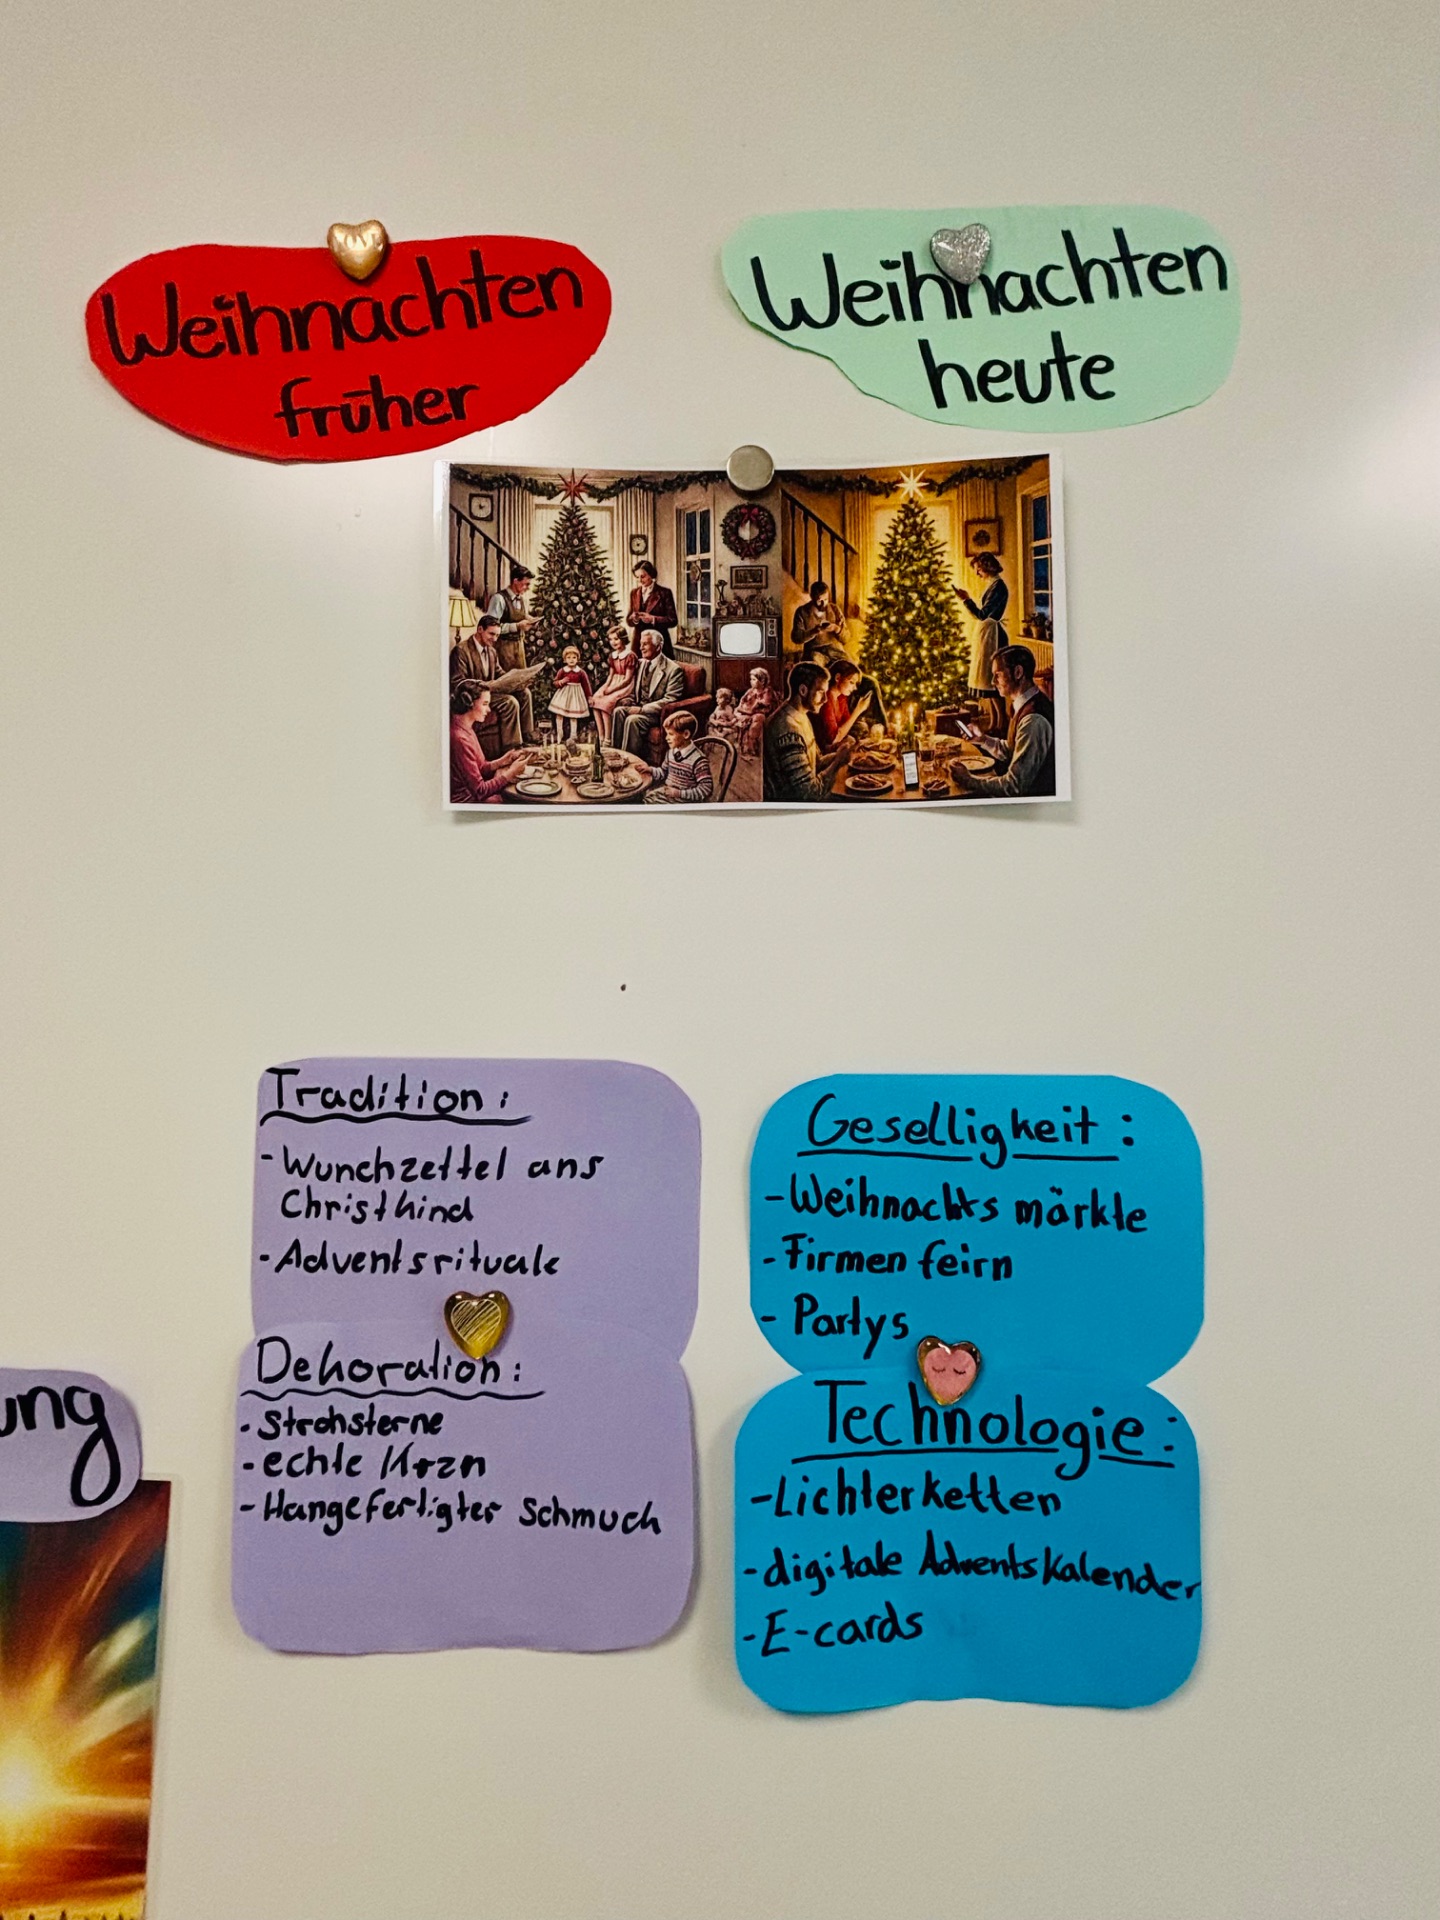 Weihnachten
früher
Weihnachten
heute
Tradition:
- Wunchzettel ans
Christkind
- Adventsrituale
Dekoration:
- Strohsterne
- echte
- Hangefertigter Schmuck
Geselligkeit:
- Weihnachts märkte
- Firmen feirn
- Partys
Technologie:
- Lichterketten
- digitale Adventskalender
- E-cards
ung